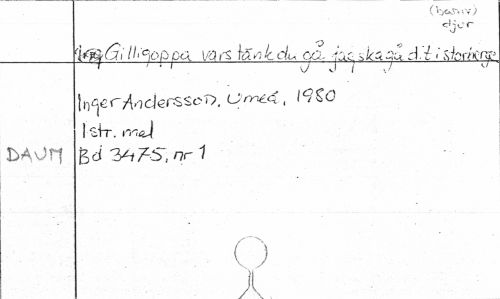 (barnv)
djur
Gilligoppa vars tänk du gå jag ska gå dit i storberge
Inger Andersson, Umeå, 1980
1 str. mel
DAUM Bd 3475, nr 1